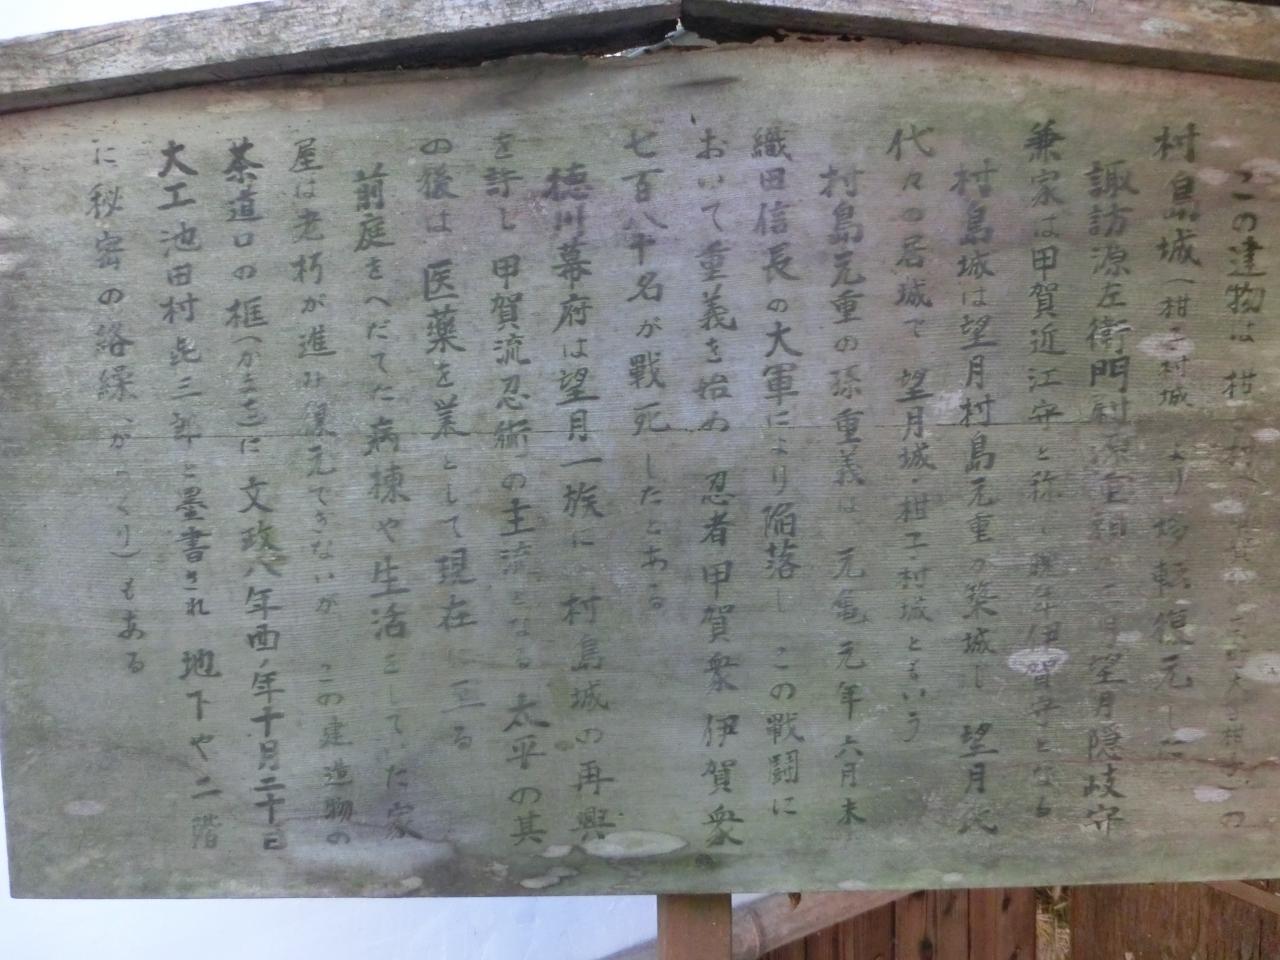 この建物は 柑
村島城(柑子村城 より移転復元した
諏訪源左衛門尉源重 望月隠岐守
兼家は甲賀近江守と称し 伊賀守となる
村島城は望月村島元重の築城し 望月氏
代々の居城で 望月城・柑子村城ともいう
村島元重の孫重義は 元亀元年六月末
織田信長の大軍により陥落し この戦闘に
おいて重義を始め 忍者甲賀衆 伊賀衆
七百八十名が戦死したとある
徳川幕府は望月一族に 村島城の再興
を許し 甲賀流忍術の主流となる 太平の其
の後は 医薬を業として現在に至る
前庭をへだてた病棟や生活をしていた家
屋は老朽が進み復元できないが この建造物の
茶道口の框(かまち)に 文政八年酉ノ年十月二十日
大工池田村㐂三郎と墨書され 地下や二階
に秘密の絡繰(からくり)もある